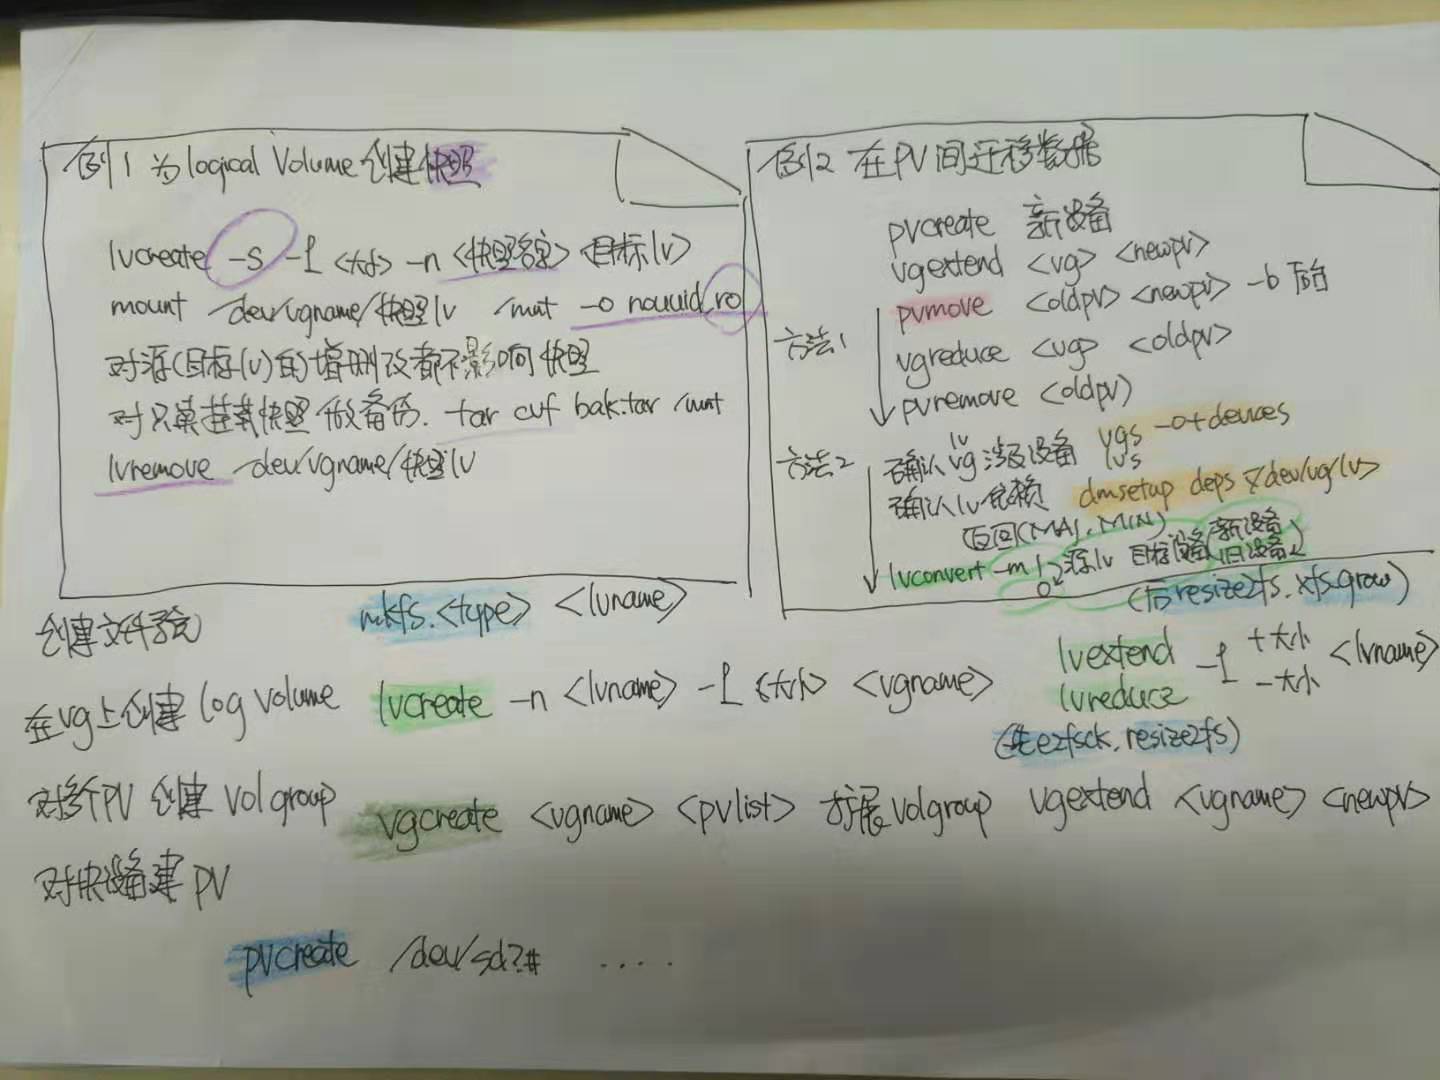 例1 为 logical Volume 创建快照
lvcreate -s -l <大小> -n <快照名字> <目标lv>
mount /dev/vgname/快照lv /mnt -o nouuid,ro
对源(目标lv)的增删改都不影响快照
对只读挂载快照做备份. tar cvf bak.tar /mnt
lvremove /dev/vgname/快照lv
例2 在PV间迁移数据
pvcreate 新设备
vgextend <vg> <newpv>
方法1 pvmove <oldpv> <newpv> -b 后台
vgreduce <vg> <oldpv>
pvremove <oldpv>
方法2 确认 lv vg 涉及设备 vgs lvs -o+devices
确认lv依赖 dmsetup deps /dev/vg/lv
返回(MAJ, MIN)
lvconvert -m 1 0 源lv 目标设备(新设备 旧设备)
(后resize2fs, xfs_grow)
创建文件系统 mkfs.<type> <lvname>
在vg上创建 log volume lvcreate -n <lvname> -l <大小> <vgname>
lvextend lvreduce -l +大小 -大小 <lvname>
(先e2fsck, resize2fs)
对多个PV 创建 Vol group vgcreate <vgname> <pvlist> 扩展Volgroup vgextend <vgname> <newpv>
对块设备建 PV
pvcreate /dev/sd?# .....